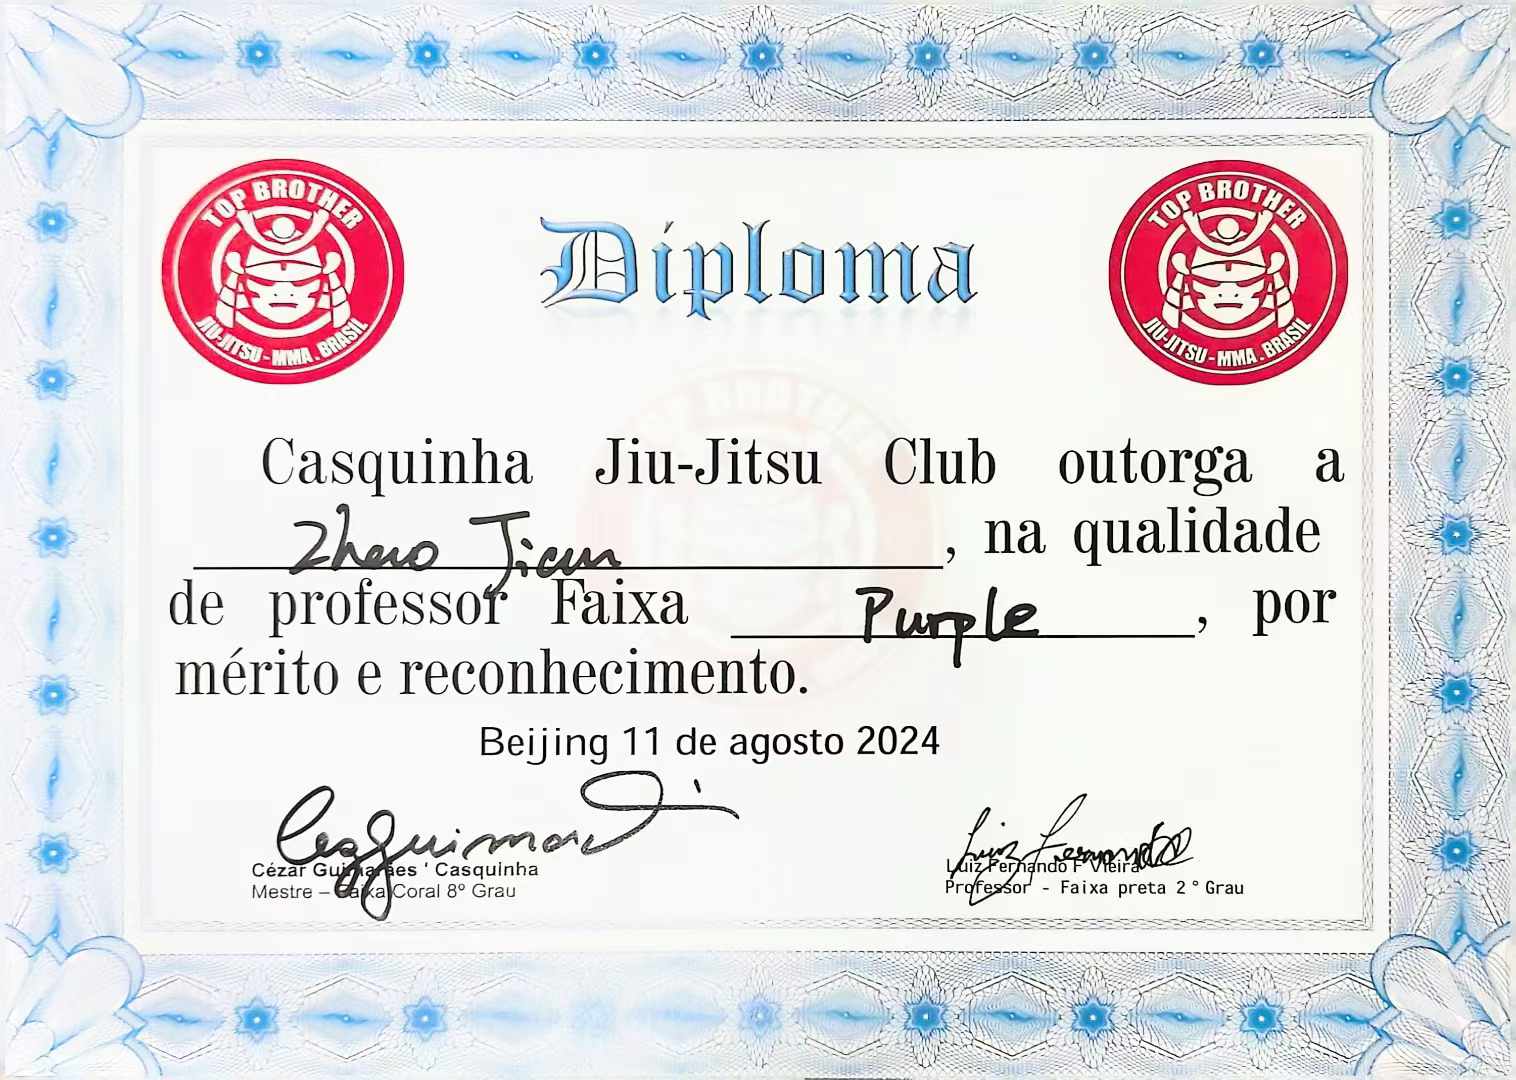 TOP BROTHER
JIU-JITSU - MMA . BRASIL
Diploma
TOP BROTHER
JIU-JITSU - MMA . BRASIL
Casquinha Jiu-Jitsu Club outorga a
Zhao Jian, na qualidade
de professor Faixa Purple, por
mérito e reconhecimento.
Beijing 11 de agosto 2024
Cézar Guimaraes ' Casquinha
Mestre – Faixa Coral 8º Grau
Luiz Fernando F Vieira
Professor - Faixa preta 2 ° Grau